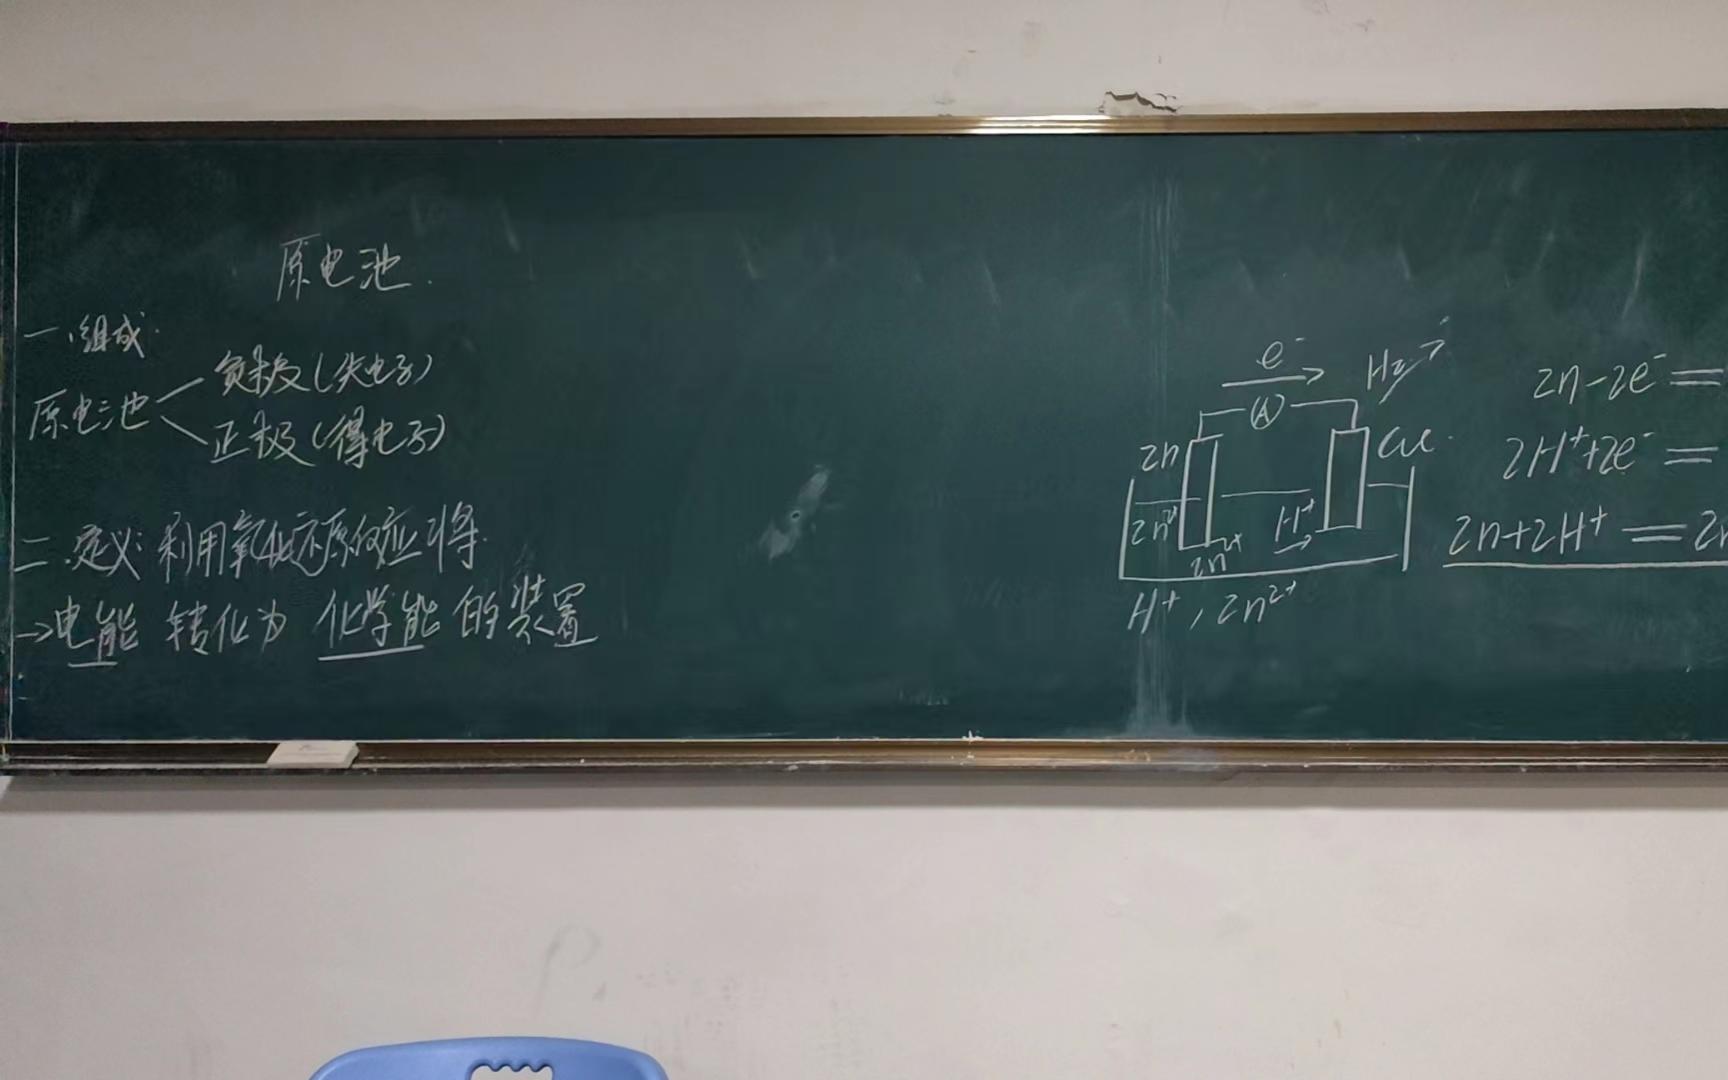 原电池
一、组成
原电池
负极(失电子)
正极(得电子)
二、定义:利用氧化还原反应将
→电能 转化为 化学能 的装置
e⁻
H₂↗
A
Zn
Cu
Zn²⁺
H⁺
Zn²⁺
H⁺, Zn²⁺
Zn-2e⁻=
2H⁺+2e⁻=
Zn+2H⁺=Zn